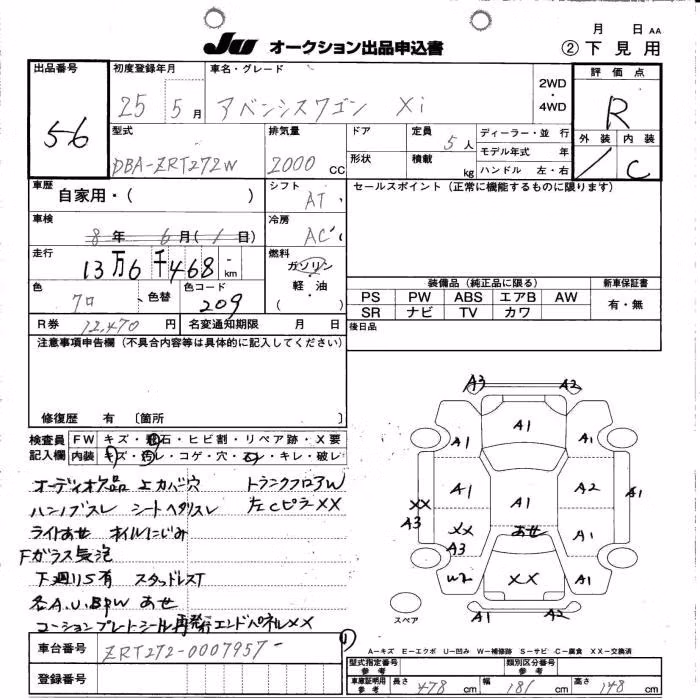 月 日 AA
JU オークション出品申込書 ② 下見用
出品番号 初度登録年月 車名・グレード 2WD・4WD 評価点
56 25 5月 アベンシスワゴン Xi R
型式 排気量 ドア 定員 5人 ディーラー・並行 外装 内装
DBA-ZRT272W 2000 CC 形状 積載 kg モデル年式 年 / C
ハンドル 左・右
車歴 シフト セールスポイント(正常に機能するものに限ります)
自家用・( ) AT
車検 冷房
8年 6月( 1日) AC
走行 燃料
13万6千468 km ガソリン
軽油
( )
色 色替 色コード 装備品(純正品に限る) 新車保証書
クロ 209 PS PW ABS エアB AW 有・無
SR ナビ TV カワ
R券 12,470円 名変通知期限 月 日 後日品
注意事項申告欄(不具合内容等は具体的に記入してください)
修復歴 有 〔箇所 〕
検査員 FW キズ・飛石・ヒビ割・リペア跡・X要
記入欄 内装 キズ・汚レ・コゲ・穴・スレ・キレ・破レ
オーディオ欠品 上カバ穴 トランクフロアW
ハンドブスレ シートヘタリスレ 左CピラXX
ライトあせ オイルにじみ
Fガラス気泡
下廻りS有 スタッドレスT
各A.U.BPW あせ
コーションプレートシール再発行 エンドパネルXX
A3 A2
A1
A1 A1
A1 A1 A2 A1
XX
A3
XX あせ A1
A3
W2 XX A1
スペア A1 A2
車台番号 ZRT272-0007957
登録番号
A-キズ E-エクボ U-凹み W-補修跡 S-サビ C-腐食 XX-交換済
型式指定番号 参考 類別区分番号 参考
車庫証明用 参考 長さ 478 cm 幅 181 cm 高さ 148 cm